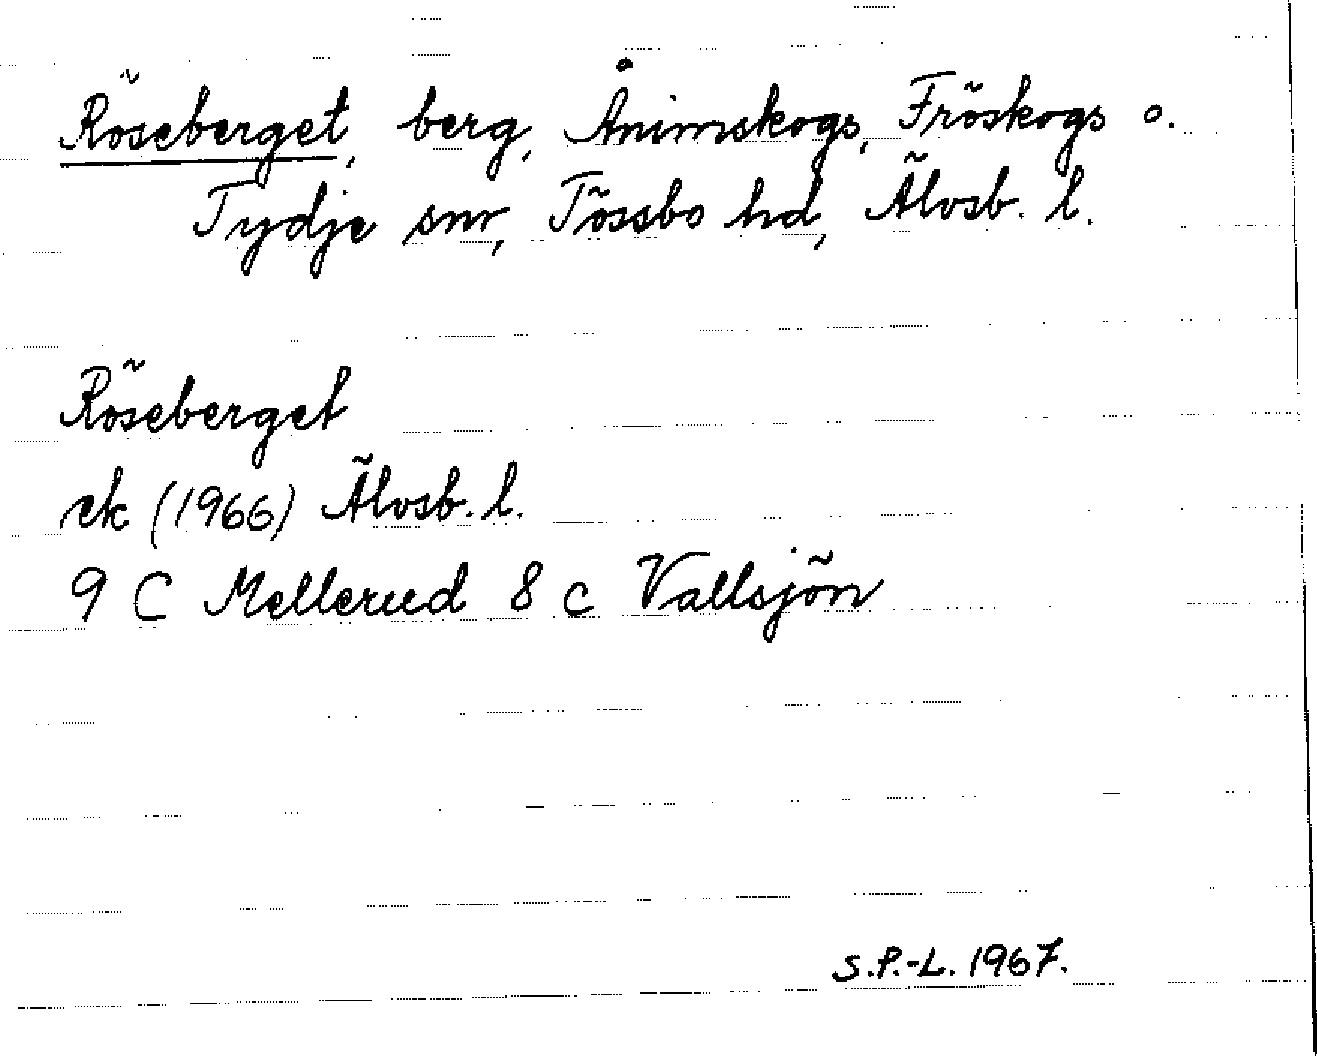 Röseberget, berg, Ånimskogs, Fröskogs o.
Tydje snr, Tössbo hd, Älvsb. l.
Röseberget
ek (1966) Älvsb. l.
9 C Mellerud 8 c Vallsjön
S.P.-L. 1967.